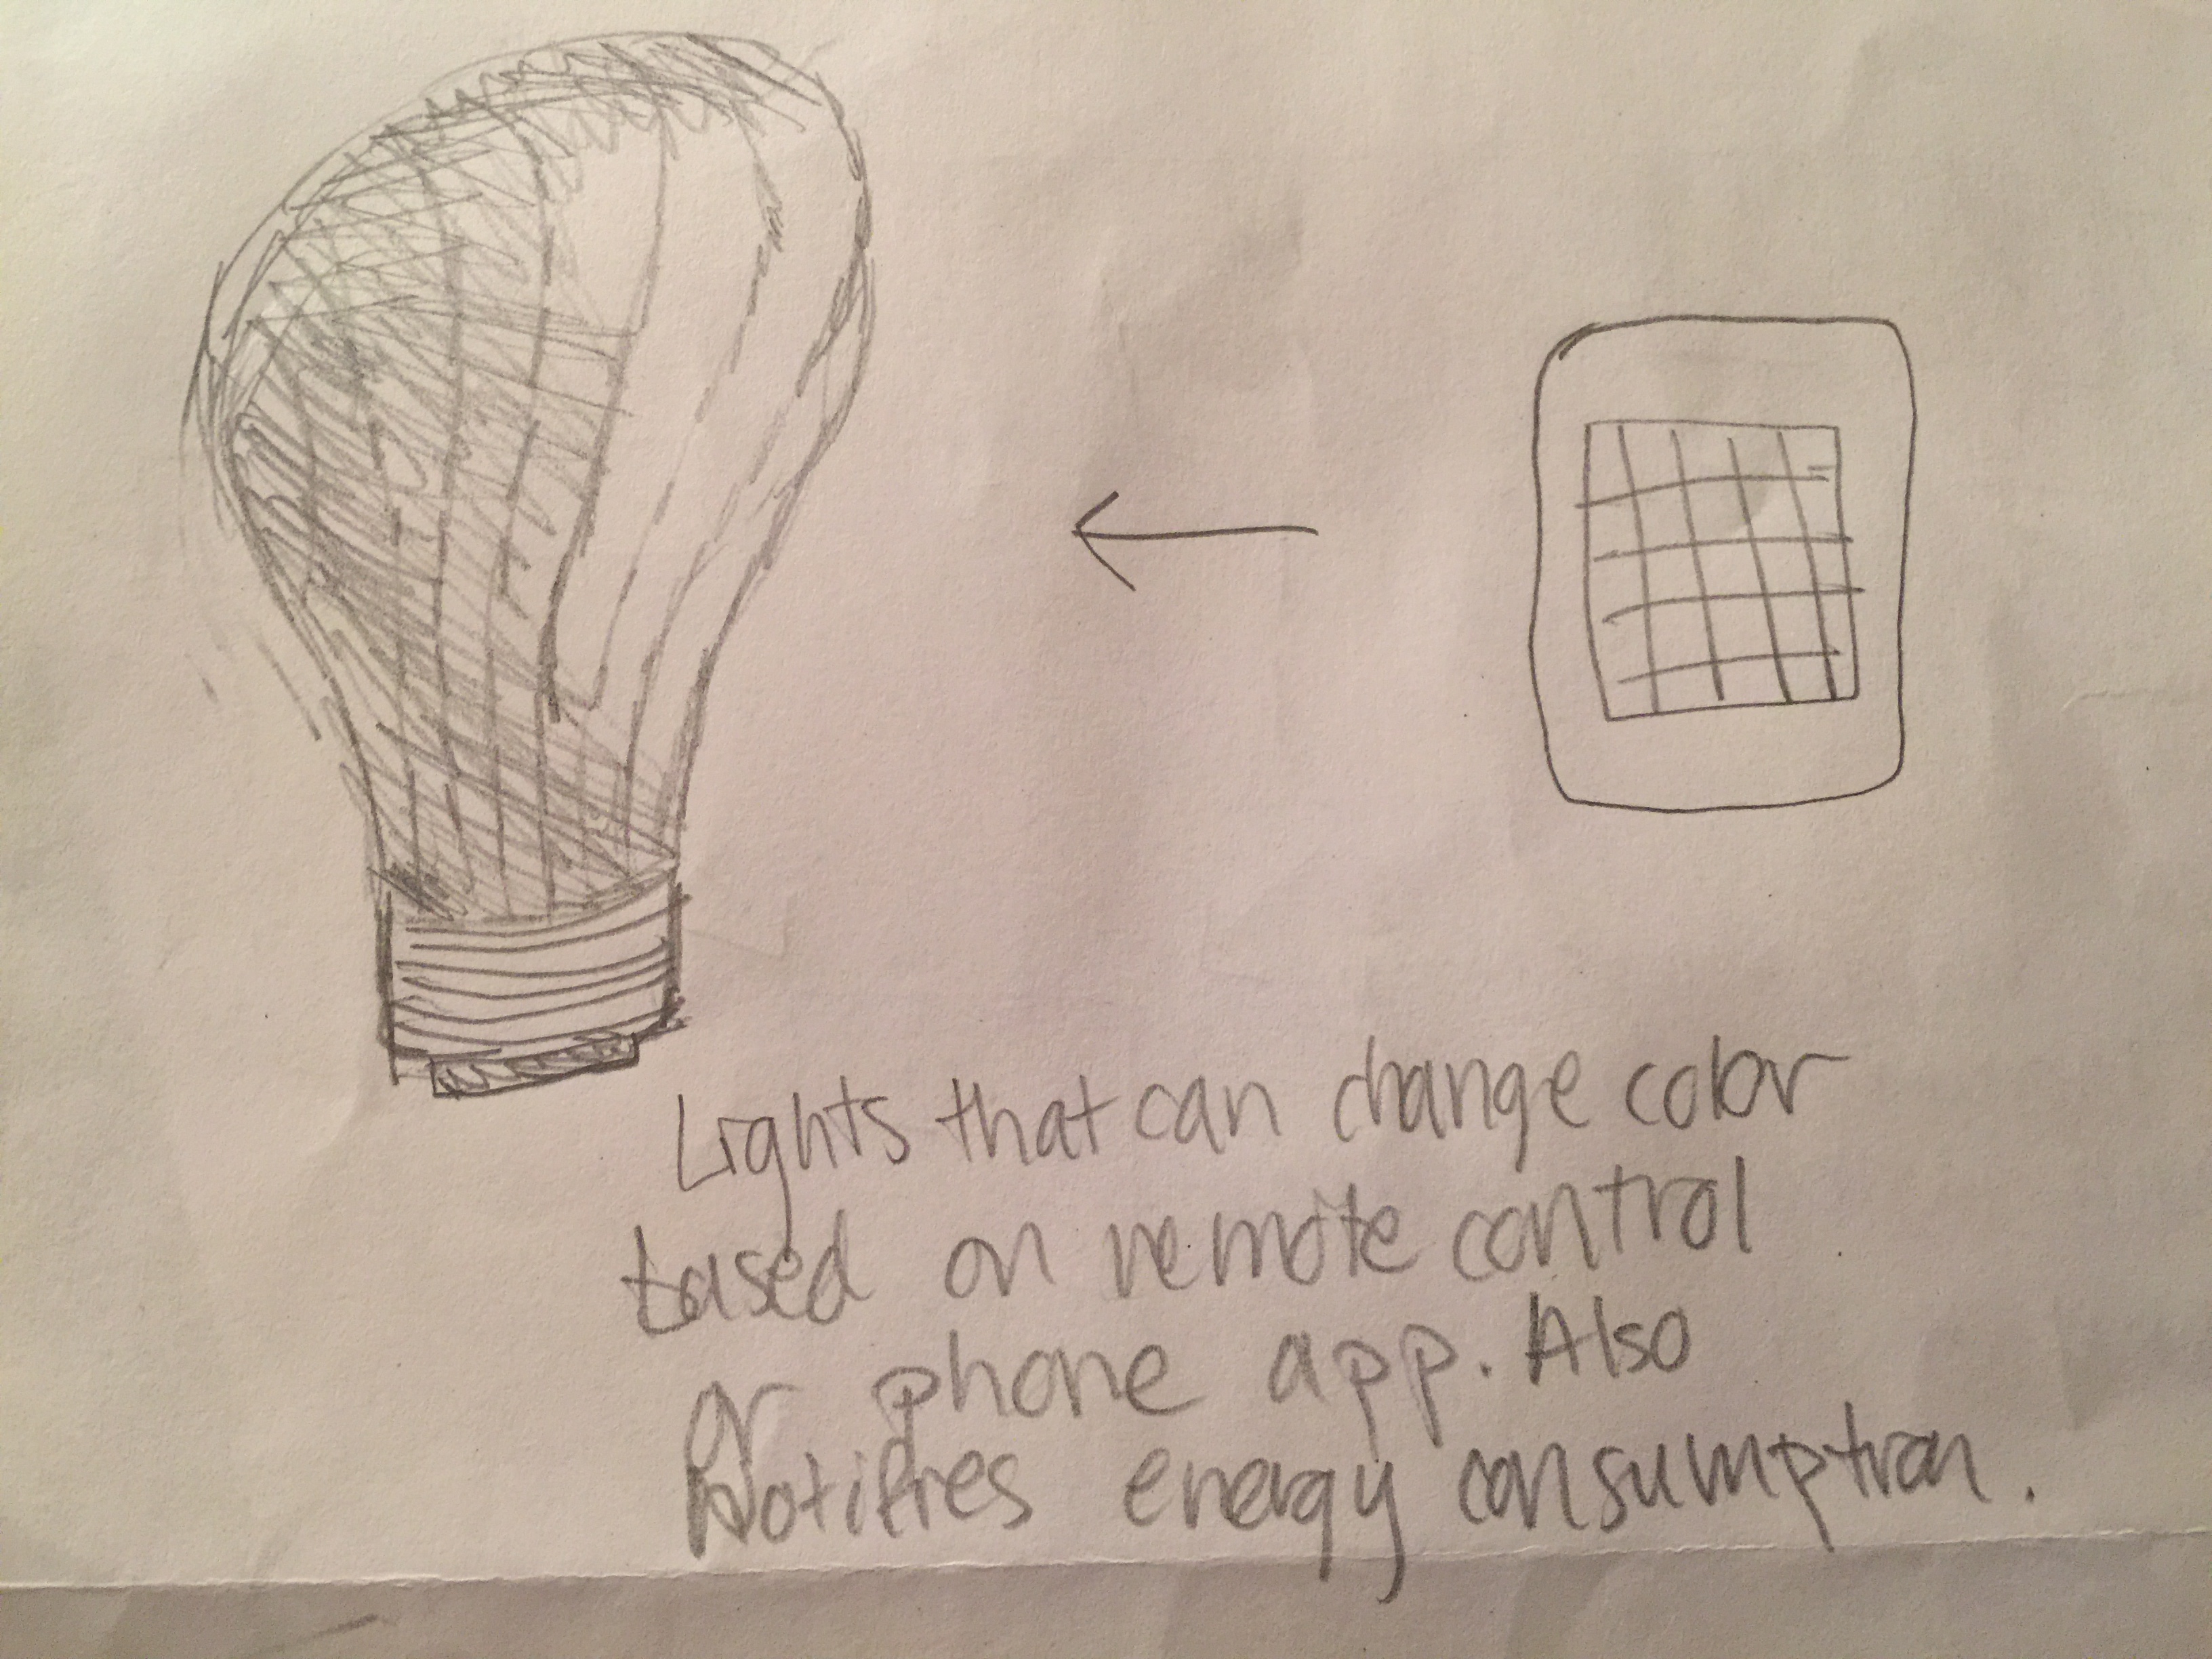 Lights that can change color
based on remote control
or phone app. Also
Notifies energy consumption.